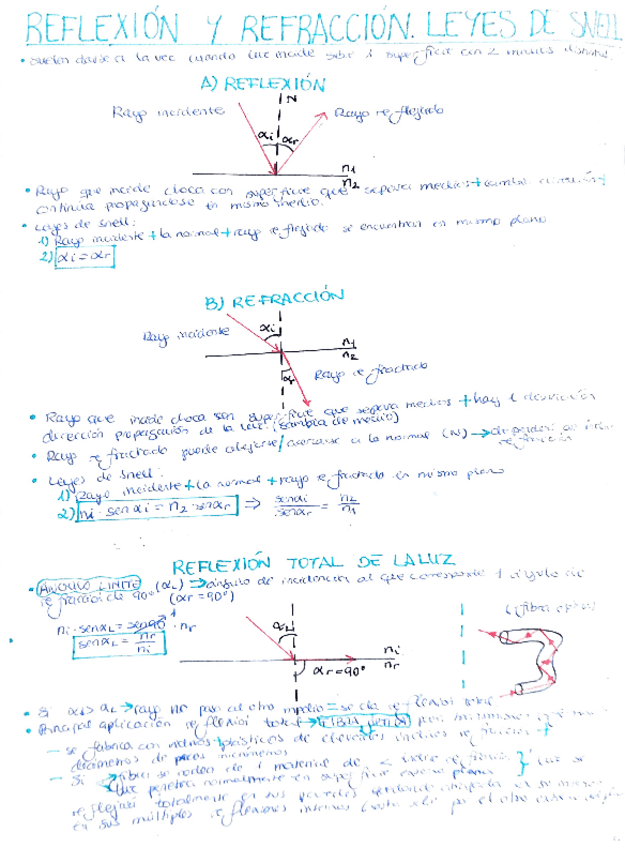 REFLEXIÓN Y REFRACCIÓN. LEYES DE SNELL
• Suelen darse a la vez cuando luz incide sobre 1 superficie con 2 medios distintos.
A) REFLEXIÓN
N
Rayo incidente
Rayo reflejado
αi αr
n1
n2
• Rayo que incide choca con superficie que separa medios + cambia dirección +
continúa propagándose en mismo medio.
• Leyes de Snell:
1) Rayo incidente + la normal + rayo reflejado se encuentran en mismo plano
2) αi = αr
B) REFRACCIÓN
Rayo incidente
αi
n1
n2
αr
Rayo refractado
• Rayo que incide choca con superficie que separa medios + hay 1 desviación
dirección propagación de la luz. (cambia de medio)
• Rayo refractado puede alejarse/acercarse a la normal (N) → de
refracción
• Leyes de Snell:
1) Rayo incidente + la normal + rayo refractado en mismo plano
2) ni · sen αi = n2 · sen αr ⇒ sen αi / sen αr = n2 / n1
REFLEXIÓN TOTAL DE LA LUZ
• ÁNGULO LÍMITE (αL) → ángulo de incidencia al que corresponde 1 ángulo de
refracción de 90° (αr = 90°)
ni · sen αL = sen 90° · nr
1
sen αL = nr / ni
αL
ni
nr
αr = 90°
(fibra óptica)
• Si → rayo no pasa al otro medio = se da reflexión total
• Principal aplicación reflexión total → FIBRA ÓPTICA
— se fabrica con vidrios + plásticos de elevados índices refracción +
diámetros de pocos micrómetros
— Si fibra se rodea de 1 material de < índice refracción
que penetra normalmente en superficie
reflejará totalmente en sus paredes
en sus múltiples reflexiones internas por el otro